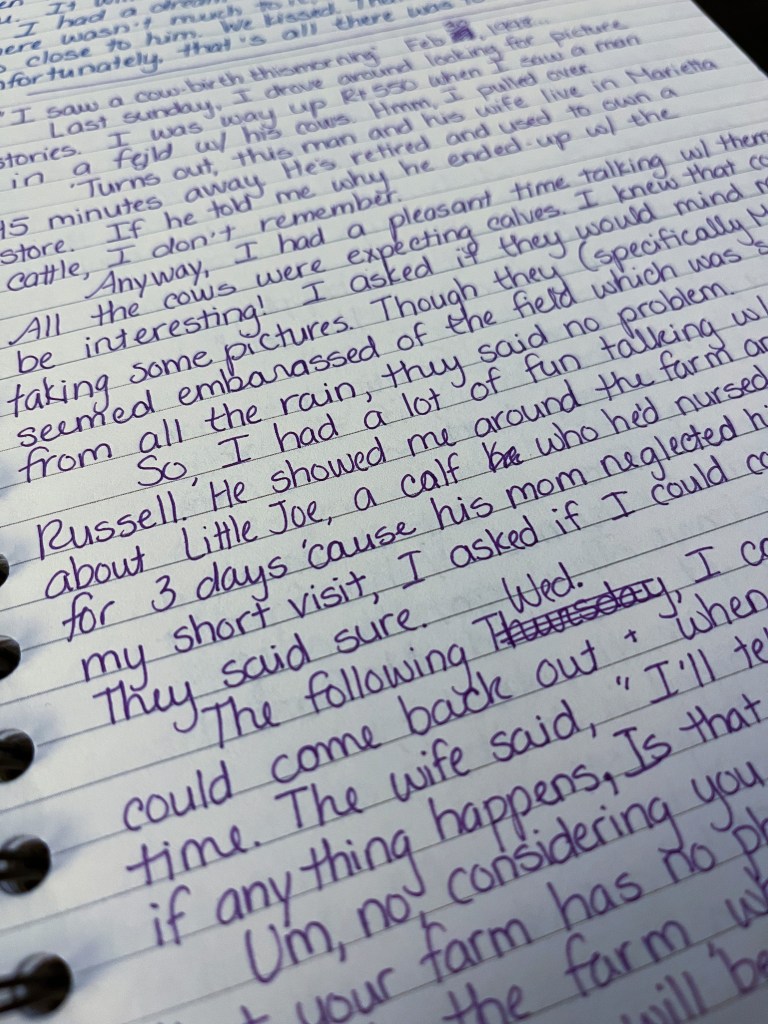 I had a dream
ere wasn't much to
close to him. We kissed. Tha
fortunately, that's all there was
"I saw a cow birth this morning" Feb
Last Sunday, I drove around looking for picture
stories. I was way up Rt 550 when I saw a man
in a feild w/ his cows. Hmm, I pulled over.
Turns out, this man and his wife live in Marietta
15 minutes away. He's retired and used to own a
store. If he told me why he ended-up w/ the
cattle, I don't remember.
Anyway, I had a pleasant time talking w/ them
All the cows were expecting calves. I knew that co
be interesting! I asked if they would mind m
taking some pictures. Though they (specifically
seemed embarrassed of the field which was s
from all the rain, they said no problem.
So, I had a lot of fun talking w/
Russell. He showed me around the farm an
about Little Joe, a calf who he'd nursed
for 3 days 'cause his mom neglected hi
my short visit, I asked if I could co
They said sure.
The following Wed. Thursday, I ca
could come back out + when
time. The wife said, "I'll tel
if anything happens, Is that
Um, no, considering you
your farm has no ph
the farm wh
will be